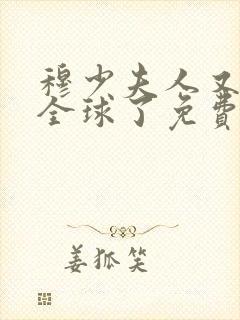 穆少夫人又
全球了免費
姜狐笑